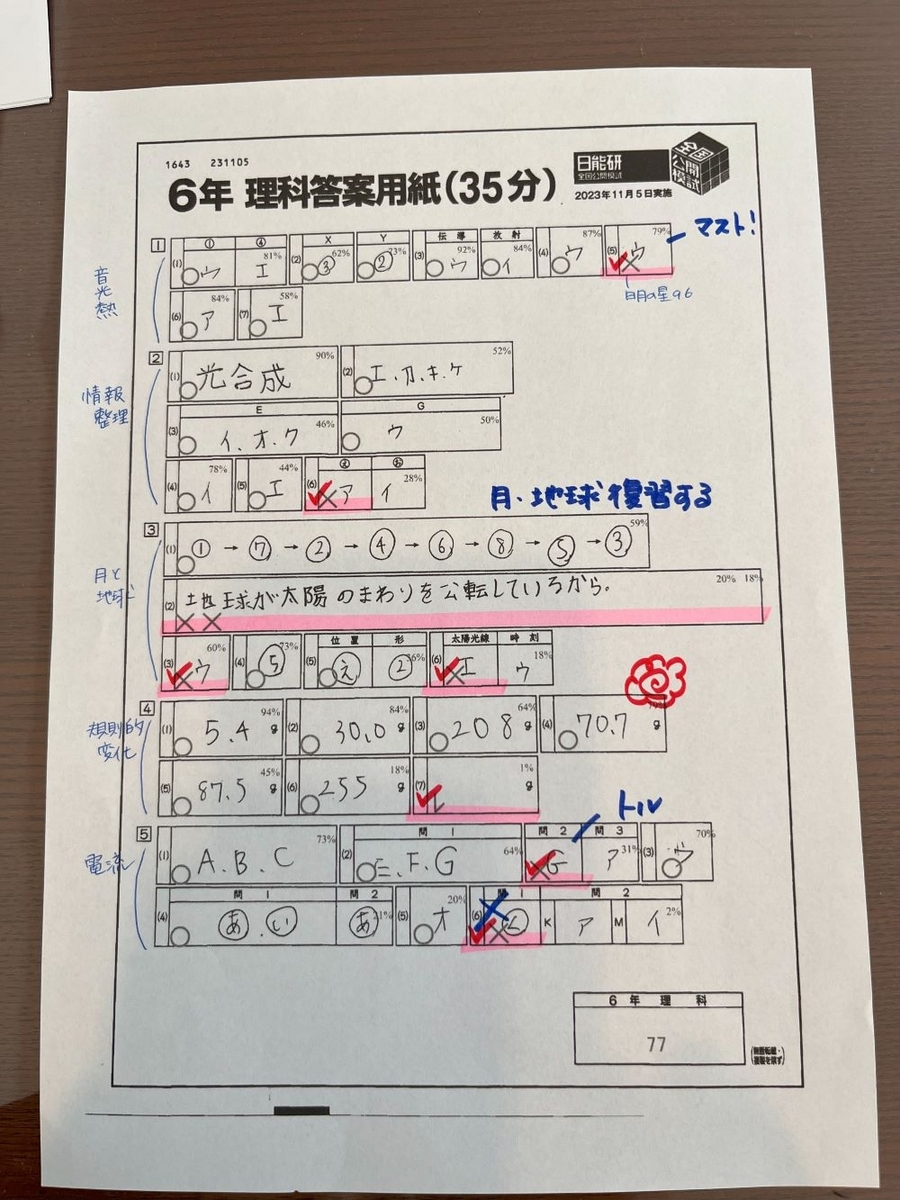 1643 231105
6年 理科答案用紙(35分)
日能研
全国公開模試
全国公開模試
2023年11月5日実施
マスト!
音光熱
1
① ④ X Y 伝導 放射
(1) ウ エ 81% (2) ③ 62% ② 73% (3) ウ 92% イ 84% (4) ウ 87% (5) ウ 79%
(6) ア 84% (7) エ 58%
情報整理
2
(1) 光合成 90% (2) エ.カ.キ.ケ 52%
E G
(3) イ.オ.ク 46% ウ 50%
(4) イ 78% (5) エ 44% (6) ア イ 28%
月・地球復習する
月と地球
3
(1) ① → ⑦ → ② → ④ → ⑥ → ⑧ → ⑤ → ③ 59%
(2) 地球が太陽のまわりを公転しているから。 20% 18%
位置 形 太陽光線 時刻
(3) ウ 60% (4) ⑤ 73% (5) え ② 36% (6) エ ウ 18%
規則的変化
4
(1) 5.4 g 94% (2) 30.0 g 84% (3) 208 g 64% (4) 70.7 g
(5) 87.5 g 45% (6) 255 g 18% (7) g 1%
トル
電流
5
問1 問2 問3
(1) A.B.C 73% (2) E.F.G 64% G ア 31% (3) 70%
問1 問2 問1 問2
(4) あ.い あ 21% (5) オ 20% (6) く K ア M イ 2%
6年理科
77
(無断転載・複製を禁ず)